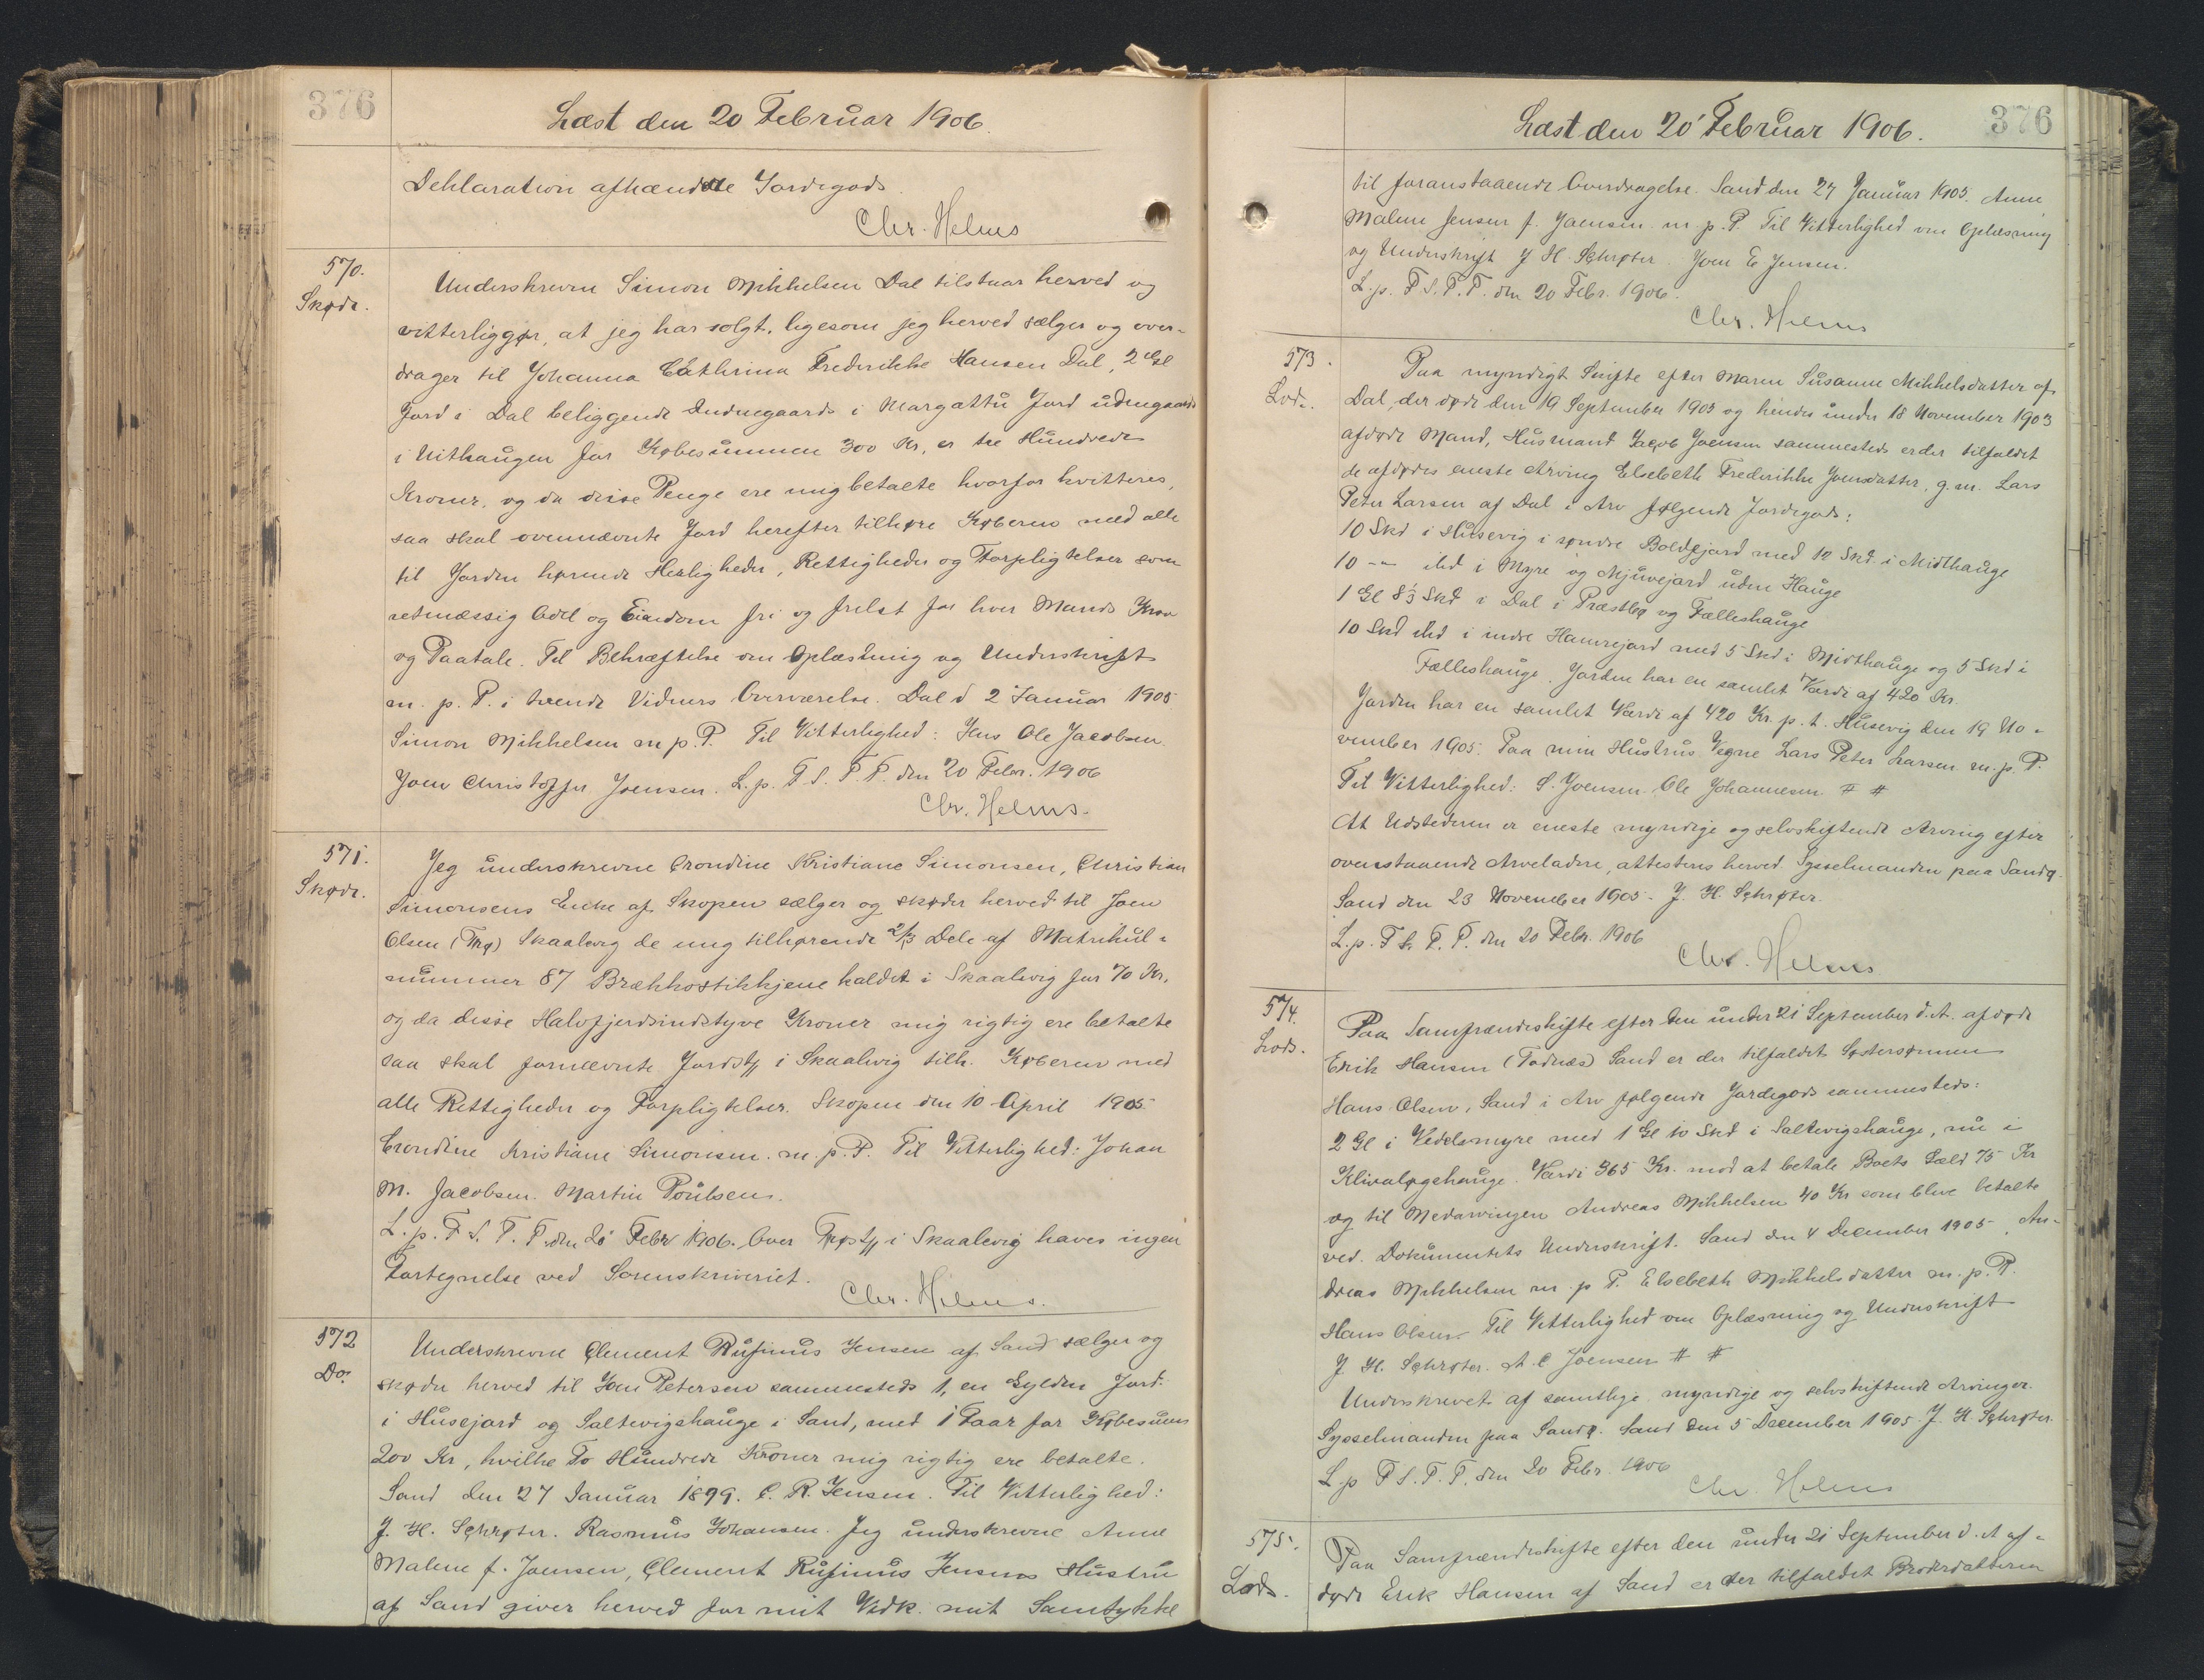 376
Læst den 20 Februar 1906.
Deklaration afhændte Jordegods.
Chr. Helms
570.
Skøde.
Underskrevne Simon Mikkelsen Dal tilstaar herved og
vitterliggør, at jeg har solgt, ligesom jeg herved sælger og over-
drager til Johanna Cathrina Frederikke Hansen Dal, 2 Gl
Jord i Dal beliggende Indnegaards i Margattu Jord udengaards
i Uithaugen for Købesummen 300 Kr, er tre Hundrede
Kroner, og da disse Penge ere mig betalte hvorfor kvitteres,
saa skal ovennævnte Jord herefter tilhøre Køberen med alle
til Jorden hørende Herligheder, Rettigheder og Forpligtelser som
retmæssig Odel og Eiendom fri og frelst for hver Mands Krav
og Paatale. Til Bekræftelse om Oplæsning og Underskrift
m. p. P. i tvende Vidners Overværelse. Dal d 2 Januar 1905
Simon Mikkelsen m. p. P. Til Vitterlighed: Jens Ole Jacobsen.
Joen Christoffer Joensen. L. p. F. S. T. P. den 20 Febr. 1906
Chr. Helms.
571.
Skøde.
Jeg underskrevne Crondine Kristiane Simonsen, Christian
Simonsens Enke af Skopen sælger og skøder herved til Joen
Olsen (Trø) Skaalevig de mig tilhørende 2/3 Dele af Matrikul-
nummer 87 Brækkostikkjene kaldet i Skaalvig for 70 Kr,
og da disse Halvfjerdsindstyve Kroner mig rigtig ere betalte
saa skal fornævnte Jordst. i Skaalvig tilh. Køberen med
alle Rettigheder og Forpligtelser. Skopen den 10 April 1905
Crondine Kristiane Simonsen. m. p. P. Til Vitterlighed: Johan
M. Jacobsen. Martin Poulsen.
L. p. F. S. T. P. den 20 Febr 1906. Over Trøst. i Skaalevig haves ingen
Fortegnelse ved Sorenskriveriet.
Chr. Helms.
572
Do.
Underskrevne Clement Rufinus Jensen af Sand sælger og
skøder herved til Joen Petersen sammesteds 1, en Gylden Jord
i Husejord og Saltevigshauge i Sand, med 1 Faar for Købesum
200 Kr, hvilke To Hundrede Kroner mig rigtig ere betalte.
Sand den 27 Januar 1899. C. R. Jensen. Til Vitterlighed:
J. H. Schrøter. Rasmus Johansen. Jeg underskrevne Anne
Malene f. Joensen, Clement Rufinus Jensens Hustru
af Sand giver herved for mit Vedk. mit Samtykke
376
Læst den 20 Februar 1906.
til foranstaaende Overdragelse. Sand den 27 Januar 1905. Anne
Malene Jensen f. Joensen m. p. P. Til Vitterlighed om Oplæsning
og Underskrift J H. Schrøter. Joen E Jensen.
L. p. F. S. T. P. den 20 Febr. 1906.
Chr. Helms
573.
Lod.
Paa myndigt Skifte efter Maren Susanne Mikkelsdatter af
Dal, der døde den 19 September 1905 og hendes under 18 November 1903
afdøde Mand, Husmand Jacob Joensen sammesteds er der tilfaldet
de afdødes eneste Arving Elsebeth Frederikke Joensdatter, g. m. Lars
Peter Larsen af Dal i Arv følgende Jordegods:
10 Skd i Husevig i søndre Boldgjard med 10 Skd i Midthauge
10 -"- ibd i Myre og Mjuvejard uden Hauge
1 Gl 8 1/3 Skd i Dal i Præstbø og Fælleshauge
10 Skd ibd i indre Hamrejard med 5 Skd i Midthauge og 5 Skd i
Fælleshauge. Jorden har en samlet Værdi af 420 Kr.
Jorden har en samlet Værdi af 420 Kr. p. t. Husevig den 19 No-
vember 1905. Paa min Hustrus Vegne Lars Peter Larsen m. p. P.
Til Vitterlighed: S. Joensen. Ole Johannesen # #
At Udstederen er eneste myndige og selvskiftende Arving efter
ovenstaaende Arveladere, attesteres herved. Sysselmanden paa Sandø.
Sand den 23 November 1905. J. H. Schrøter.
L. p. F. S. T. P. den 20 Febr. 1906
Chr. Helms
574.
Lods.
Paa Samfrændeskifte efter den under 21 September d. A. afdøde
Erik Hansen (Todnæs) Sand er der tilfaldet Søstersønnen
Hans Olsen, Sand i Arv følgende Jordegods sammesteds:
2 Gl i Vedelsmyre med 1 Gl 10 Skd i Saltevigshauge, nu i
Klivaløgshauge. Værdi 365 Kr. mod at betale Boets Gæld 75 Kr
og til Medarvingen Andreas Mikkelsen 40 Kr som blive betalte
ved Dokumentets Underskrift. Sand den 4 December 1905. An-
dreas Mikkelsen m. p. P. Elsebeth Mikkelsdatter m. p. P.
Hans Olsen. Til Vitterlighed om Oplæsning og Underskrift
J H. Schrøter. A. C Joensen # #
Underskrevet af samtlige myndige og selvskiftende Arvinger.
Sysselmanden paa Sandø. Sand den 5 December 1905. J. H. Schrøter.
L. p F. S. T. P. den 20 Febr. 1906
Chr. Helms
575.
Lods.
Paa Samfrændeskifte efter den under 21 September d. A af-
døde Erik Hansen af Sand er der tilfaldet Broderdatteren